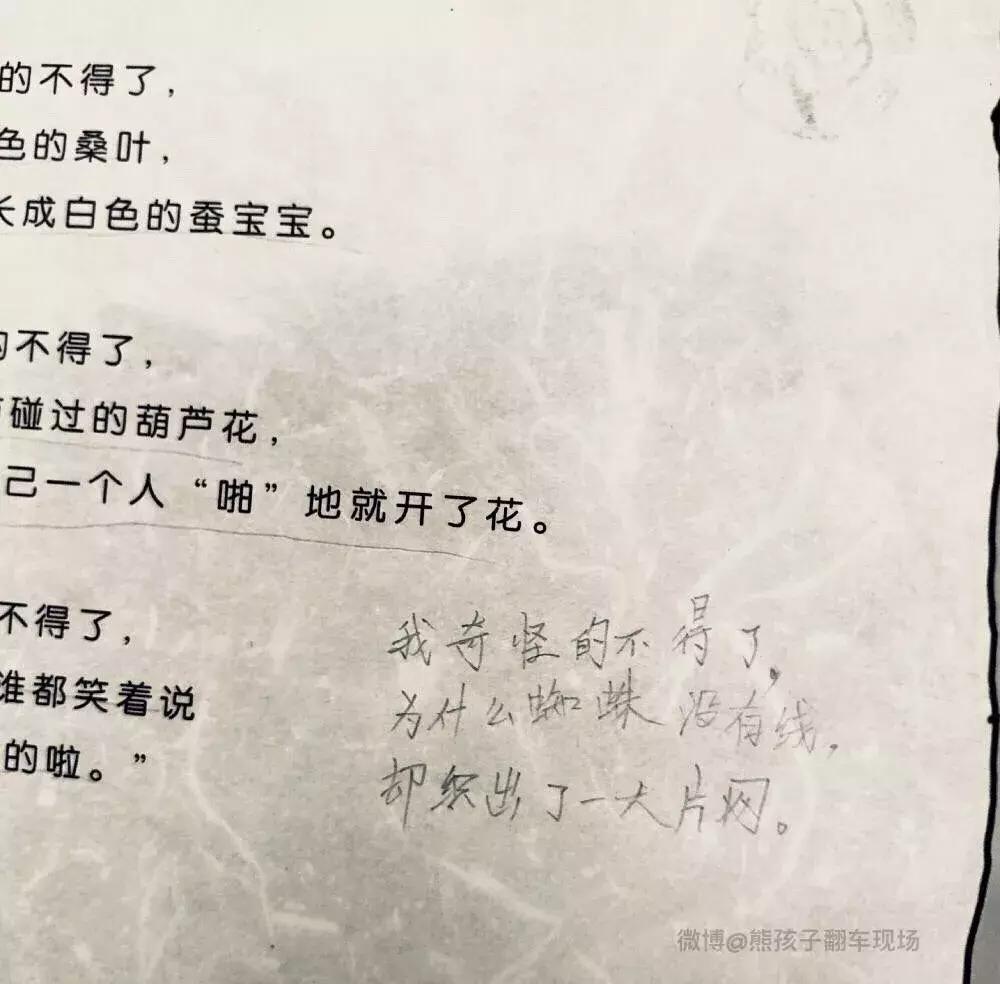 的不得了，
色的桑叶，
长成白色的蚕宝宝。
的不得了，
碰过的葫芦花，
己一个人“啪”地就开了花。
不得了，
谁都笑着说
的啦。”
我奇怪的不得了，
为什么蜘蛛没有线，
却织出了一大片网。
微博@熊孩子翻车现场